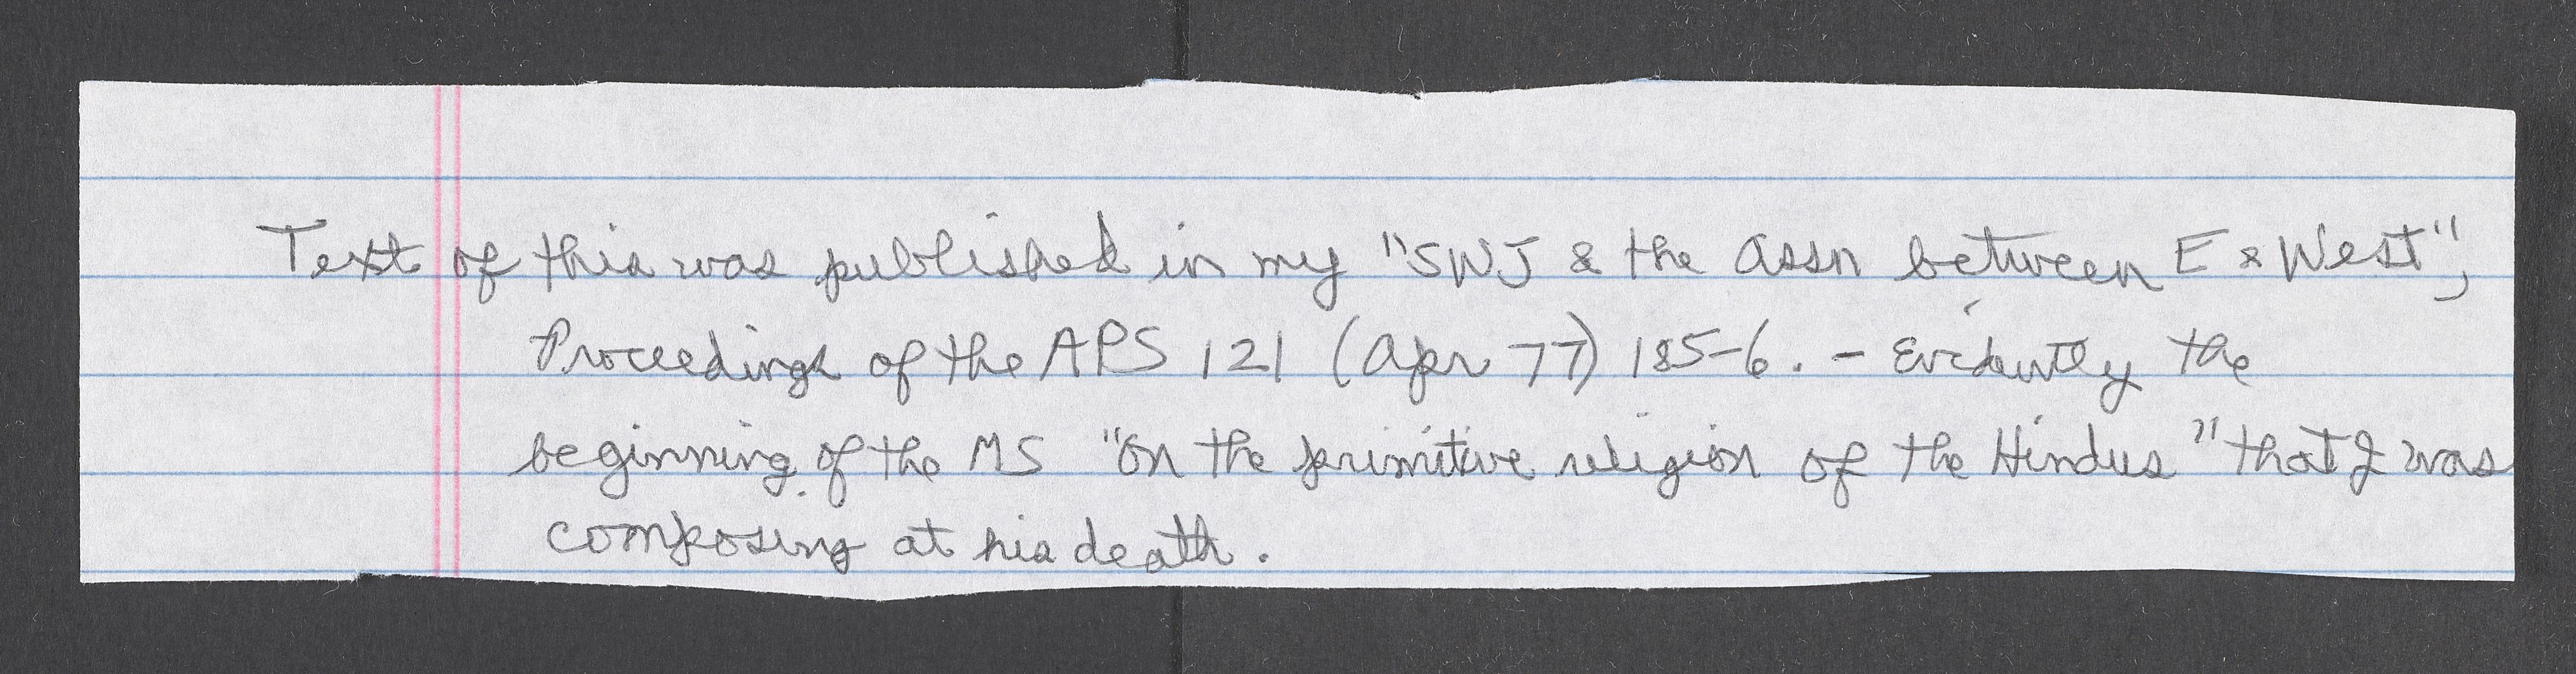 Text of this was published in my "SWJ & the Assn between E & West",
Proceedings of the APS 121 (Apr 77) 185-6. - Evidently the
beginning of the MS "On the primitive religion of the Hindus" that J was
composing at his death.